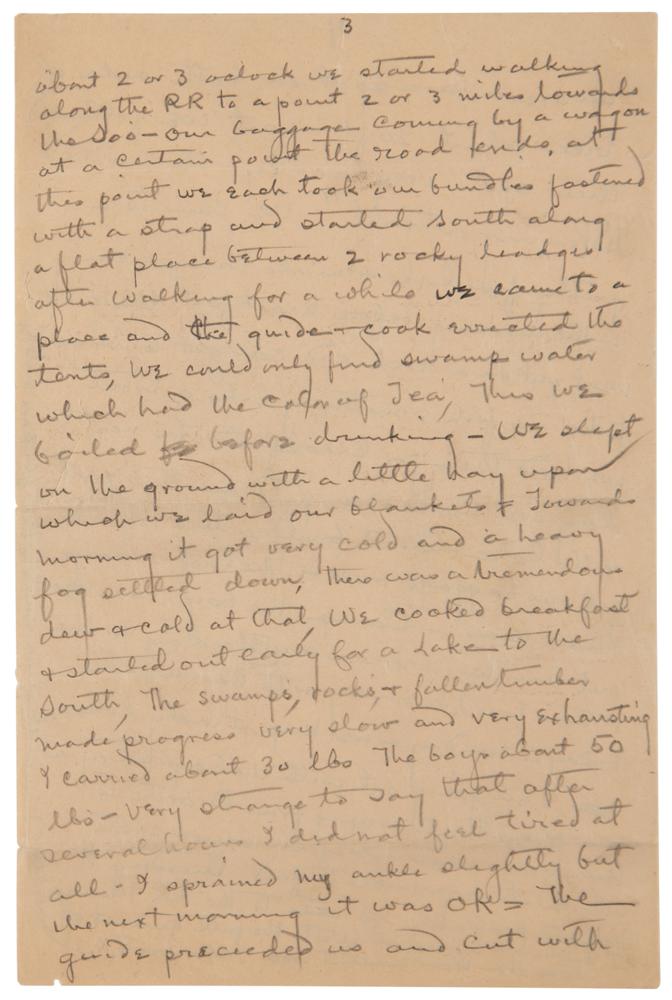 3
about 2 or 3 oclock we started walking
along the RR to a point 2 or 3 miles towards
the Soo - our baggage coming by a wagon
at a certain point the road ends, at
this point we each took our bundles fastened
with a strap and started south along
a flat place between 2 rocky leadges
after walking for a while we came to a
place and the guide - cook errected the
tents, We could only find swamp water
which had the color of Tea, This we
boiled before drinking - We slept
on the ground with a little hay upon
which we laid our blankets = Towards
morning it got very cold and a heavy
fog settled down, There was a tremendous
dew & cold at that, We cooked breakfast
& started out early for a Lake to the
South, The swamps, rocks, & fallen timber
made progress very slow and very exhausting
I carried about 30 lbs The boys about 50
lbs - Very strange to say that after
several hours I did not feel tired at
all - I sprained my ankle slightly but
the next morning it was OK = The
guide preceeded us and cut with